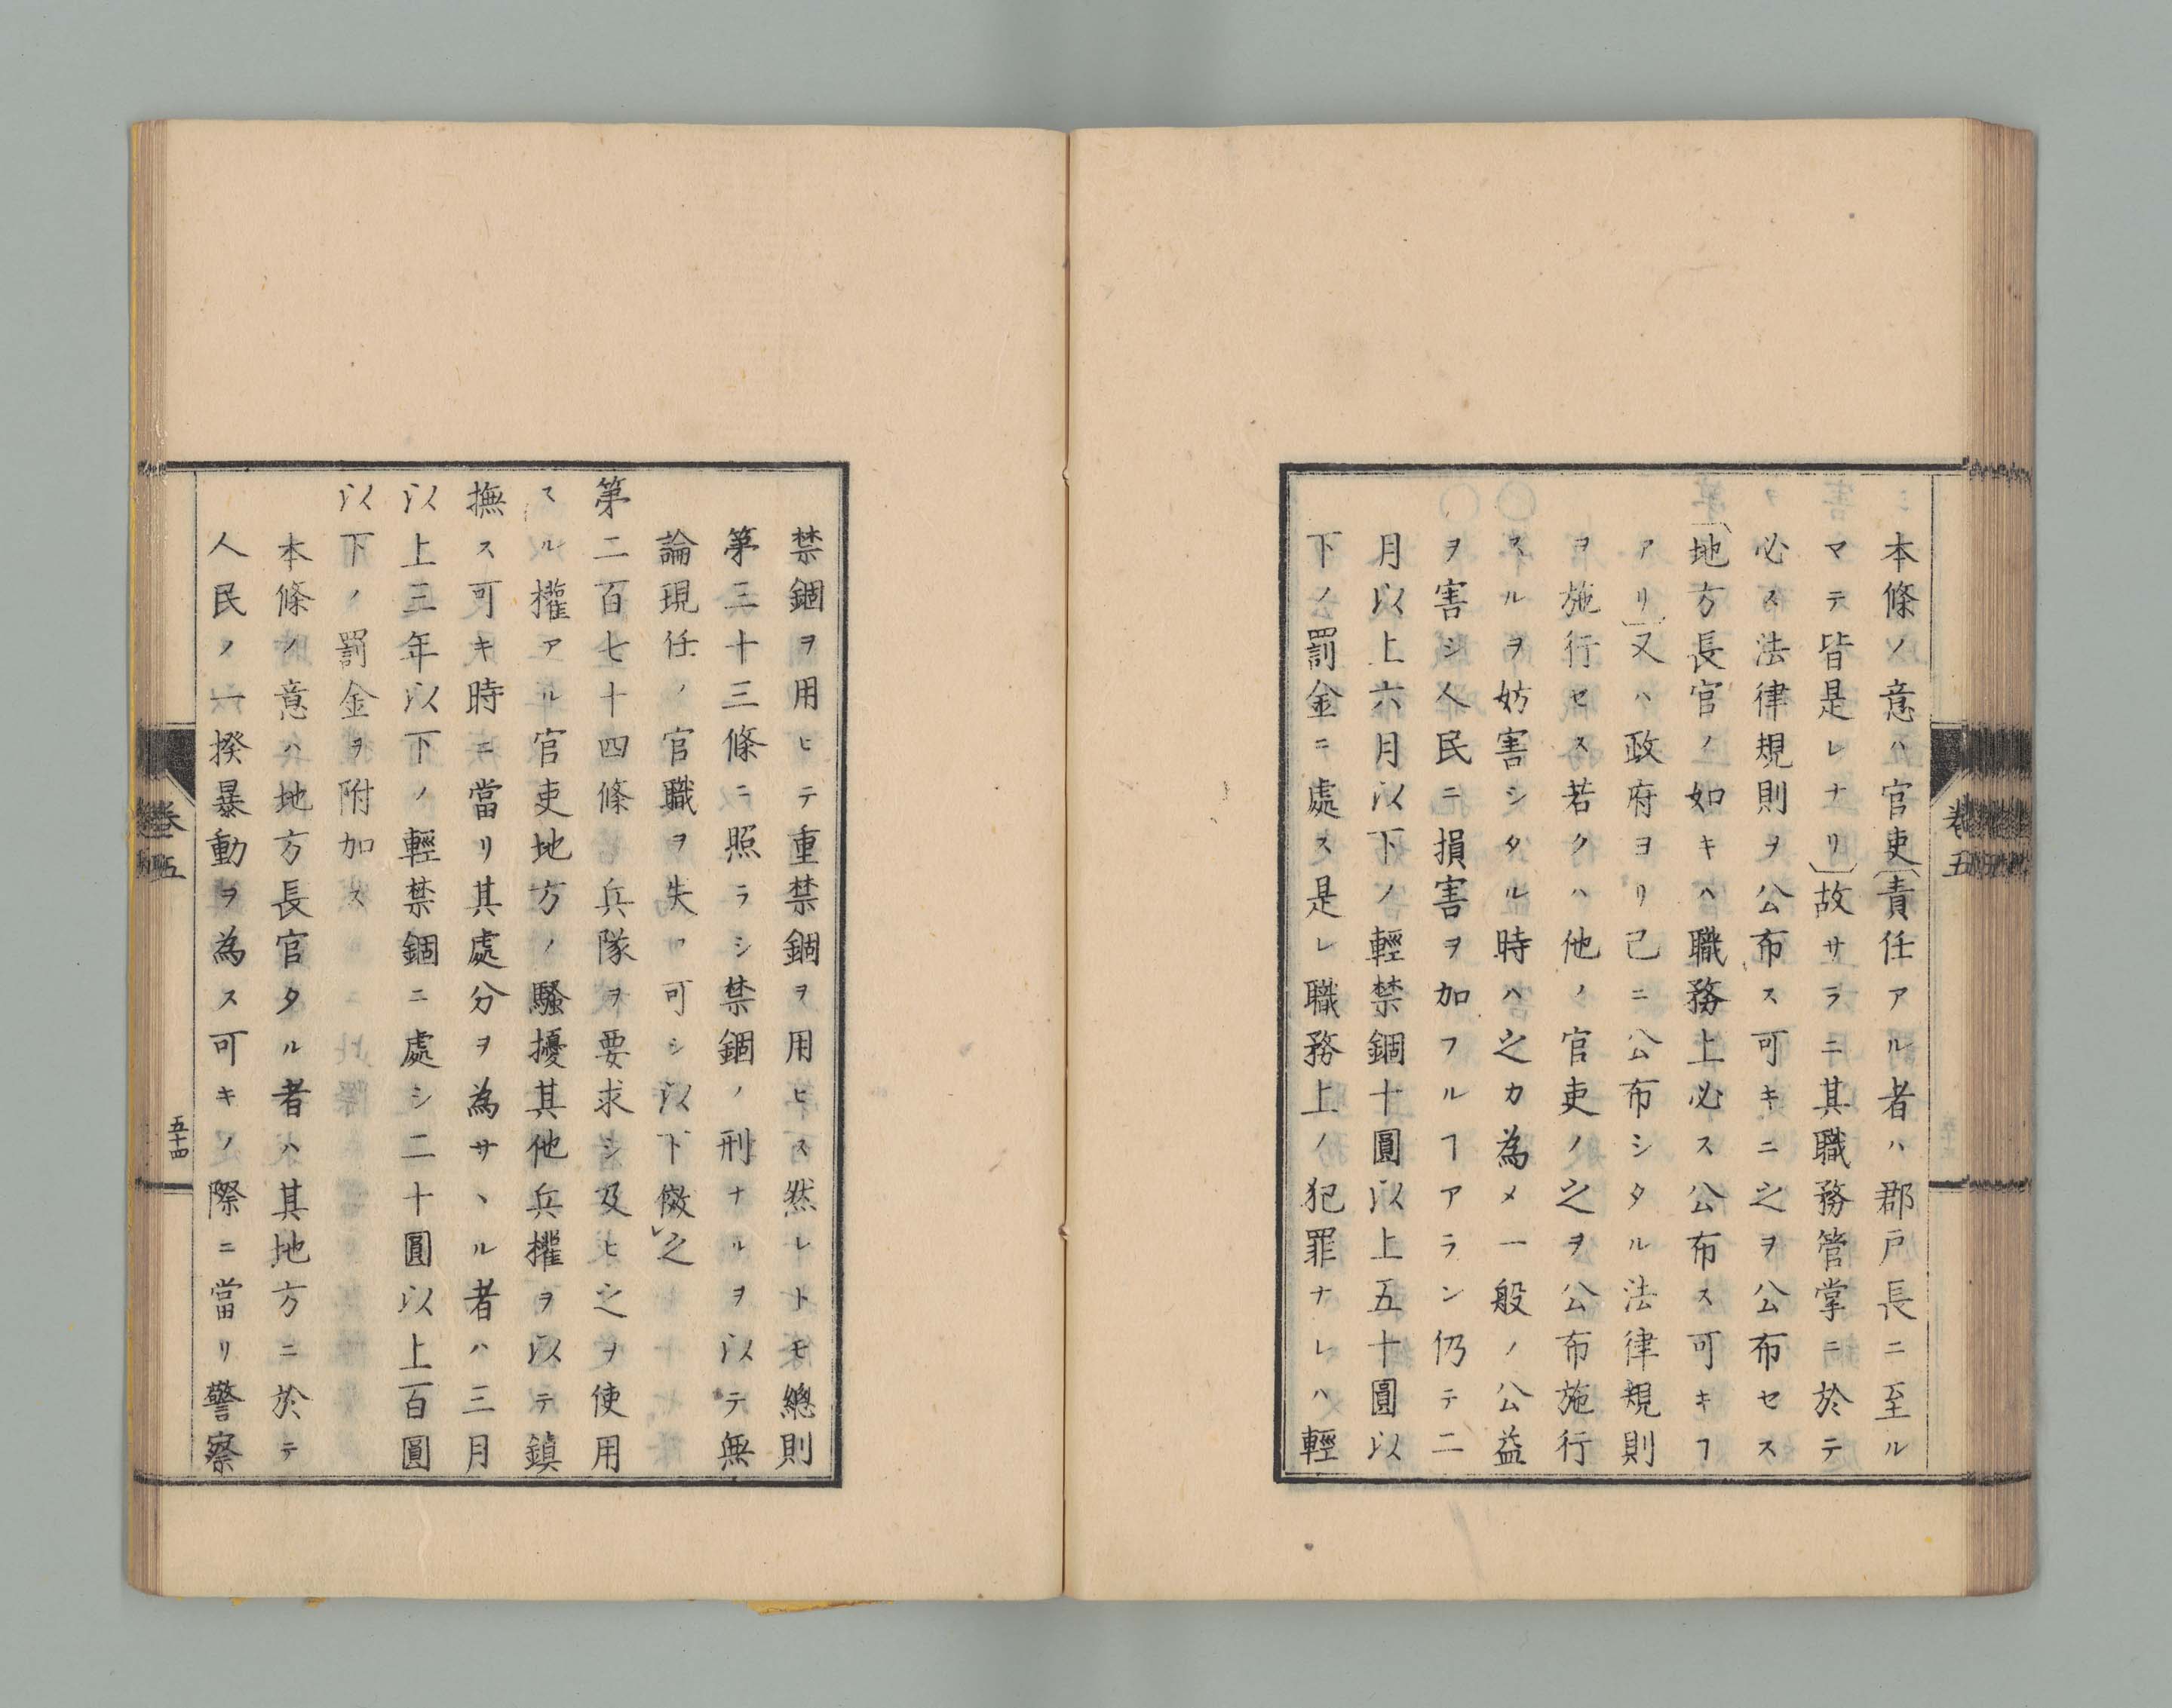 本條ノ意ハ官吏（責任アル者ハ郡戸長ニ至ル
マテ皆是レナリ）故サラニ其職務管掌ニ於テ
必ス法律規則ヲ公布ス可キニ之ヲ公布セス
（地方長官ノ如キハ職務上必ス公布ス可キヿ
アリ）又ハ政府ヨリ已ニ公布シタル法律規則
ヲ施行セス若クハ他ノ官吏ノ之ヲ公布施行
スルヲ妨害シタル時ハ之カ為メ一般ノ公益
ヲ害シ人民ニ損害ヲ加フルヿアラン仍テ二
月以上六月以下ノ輕禁錮十圓以上五十圓以
下ノ罰金ニ處ス是レ職務上ノ犯罪ナレハ輕
卷五
禁錮ヲ用ヒテ重禁錮ヲ用ヒス然レトモ總則
第三十三條ニ照ラシ禁錮ノ刑ナルヲ以テ無
論現任ノ官職ヲ失フ可シ以下傚之
第二百七十四條 兵隊ヲ要求シ及ヒ之ヲ使用
スル權アル官吏地方ノ騷擾其他兵權ヲ以テ鎮
撫ス可キ時ニ當リ其處分ヲ為サヽル者ハ三月
以上三年以下ノ輕禁錮ニ處シ二十圓以上百圓
以下ノ罰金ヲ附加ス
本條ノ意ハ地方長官タル者ハ其地方ニ於テ
人民ノ一揆暴動ヲ為ス可キノ際ニ當リ警察
卷五
五十四